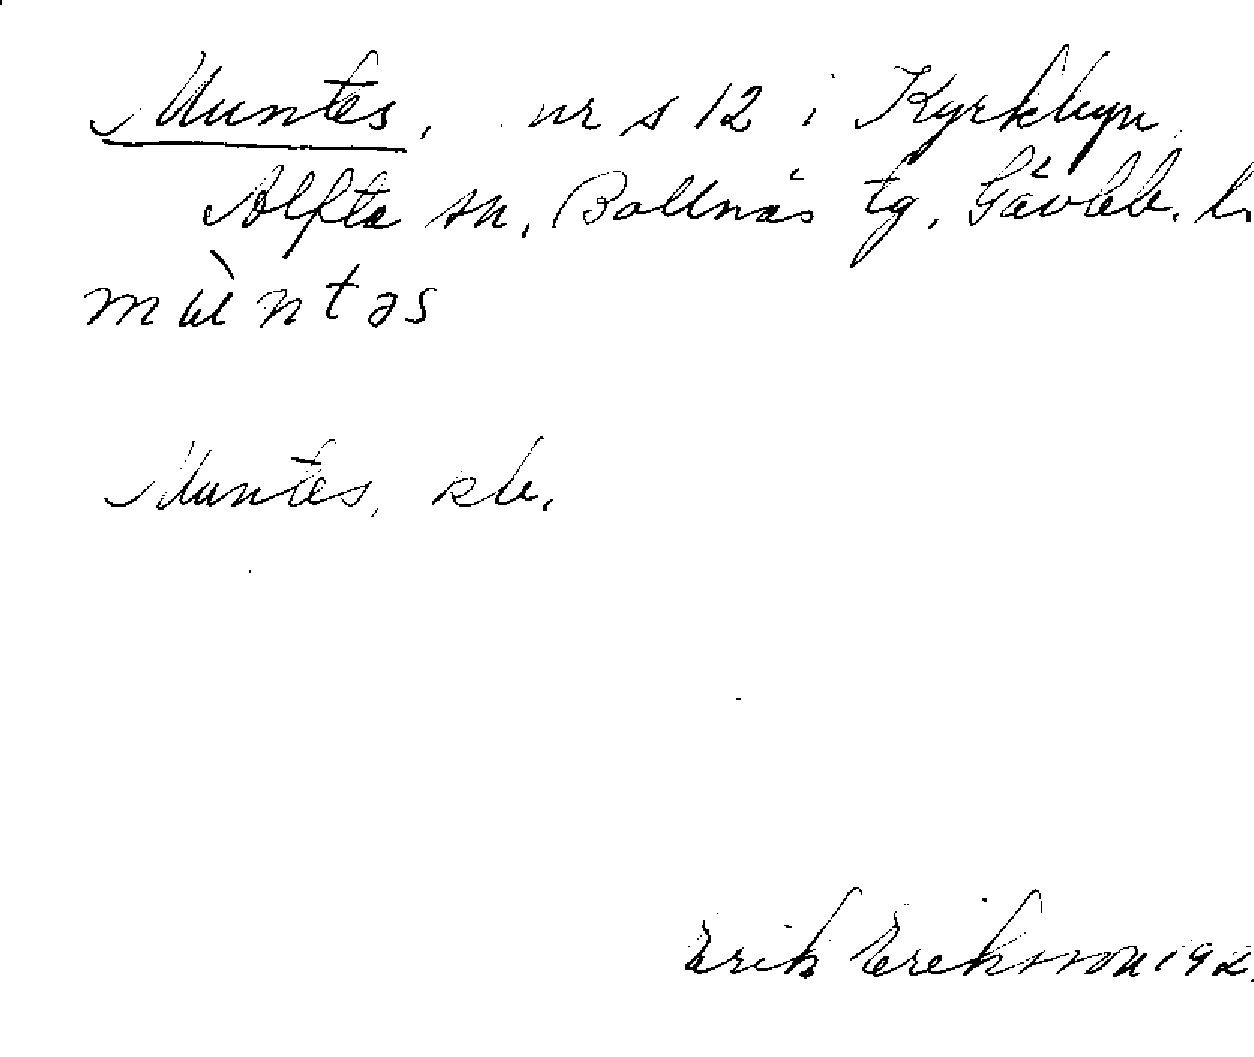 Muntes, nr s 12 i Kyrkbyn
Alfta sn, Bollnäs tg, Gävleb. l.
mùntəs
Muntes, skr.
Erik Eriksson 192